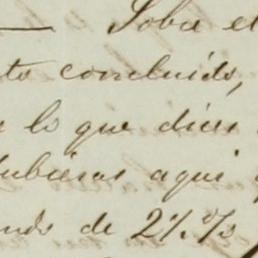 Sobre el
to concluido,
lo que dices
ubieras aqui
ndo de 2%.%